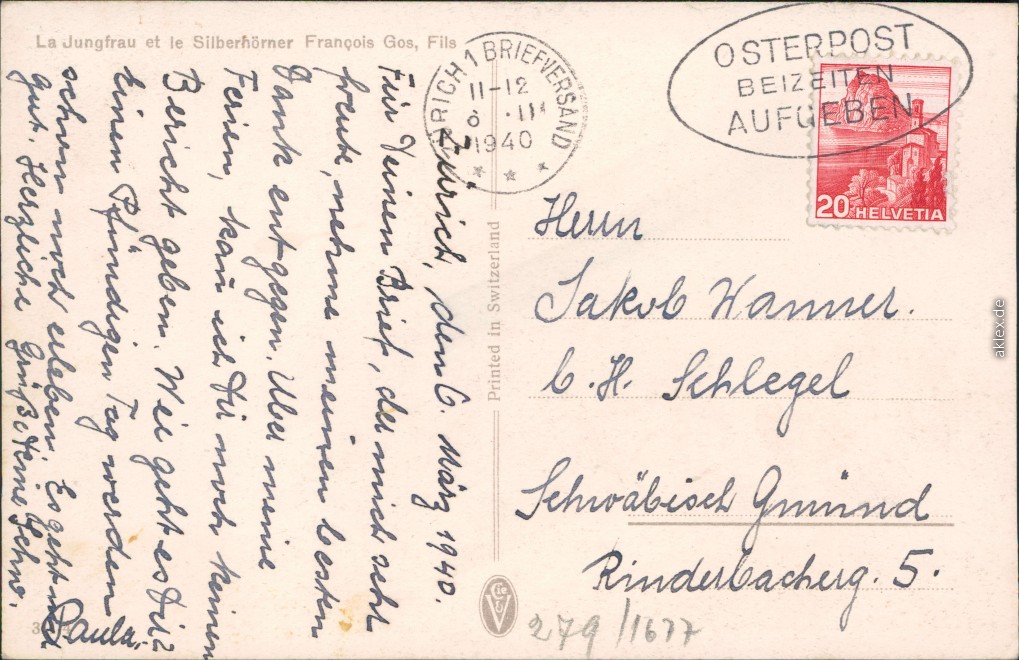 La Jungfrau et le Silberhörner François Gos, Fils
ZÜRICH 1 BRIEFVERSAND
11-12
6.III
1940
OSTERPOST
BEIZEITEN
AUFGEBEN
20 HELVETIA
Zürich, den 6. März 1940.
Für Deinen Brief, der mich sehr
freute, nehme meinen besten
Dank entgegen. Über meine
Ferien, kan ich Dir noch keinen
Bericht geben. Wie geht es Dir?
Einen Pfündigen Tag werden
schon noch erleben. Es geht mir
gut. Herzliche Grüße Deine
Paula.
Printed in Switzerland
Herrn
Jakob Wanner.
b. H. Schlegel
Schwäbisch Gmünd
Rinderbacherg. 5.
279/1677
aklex.de